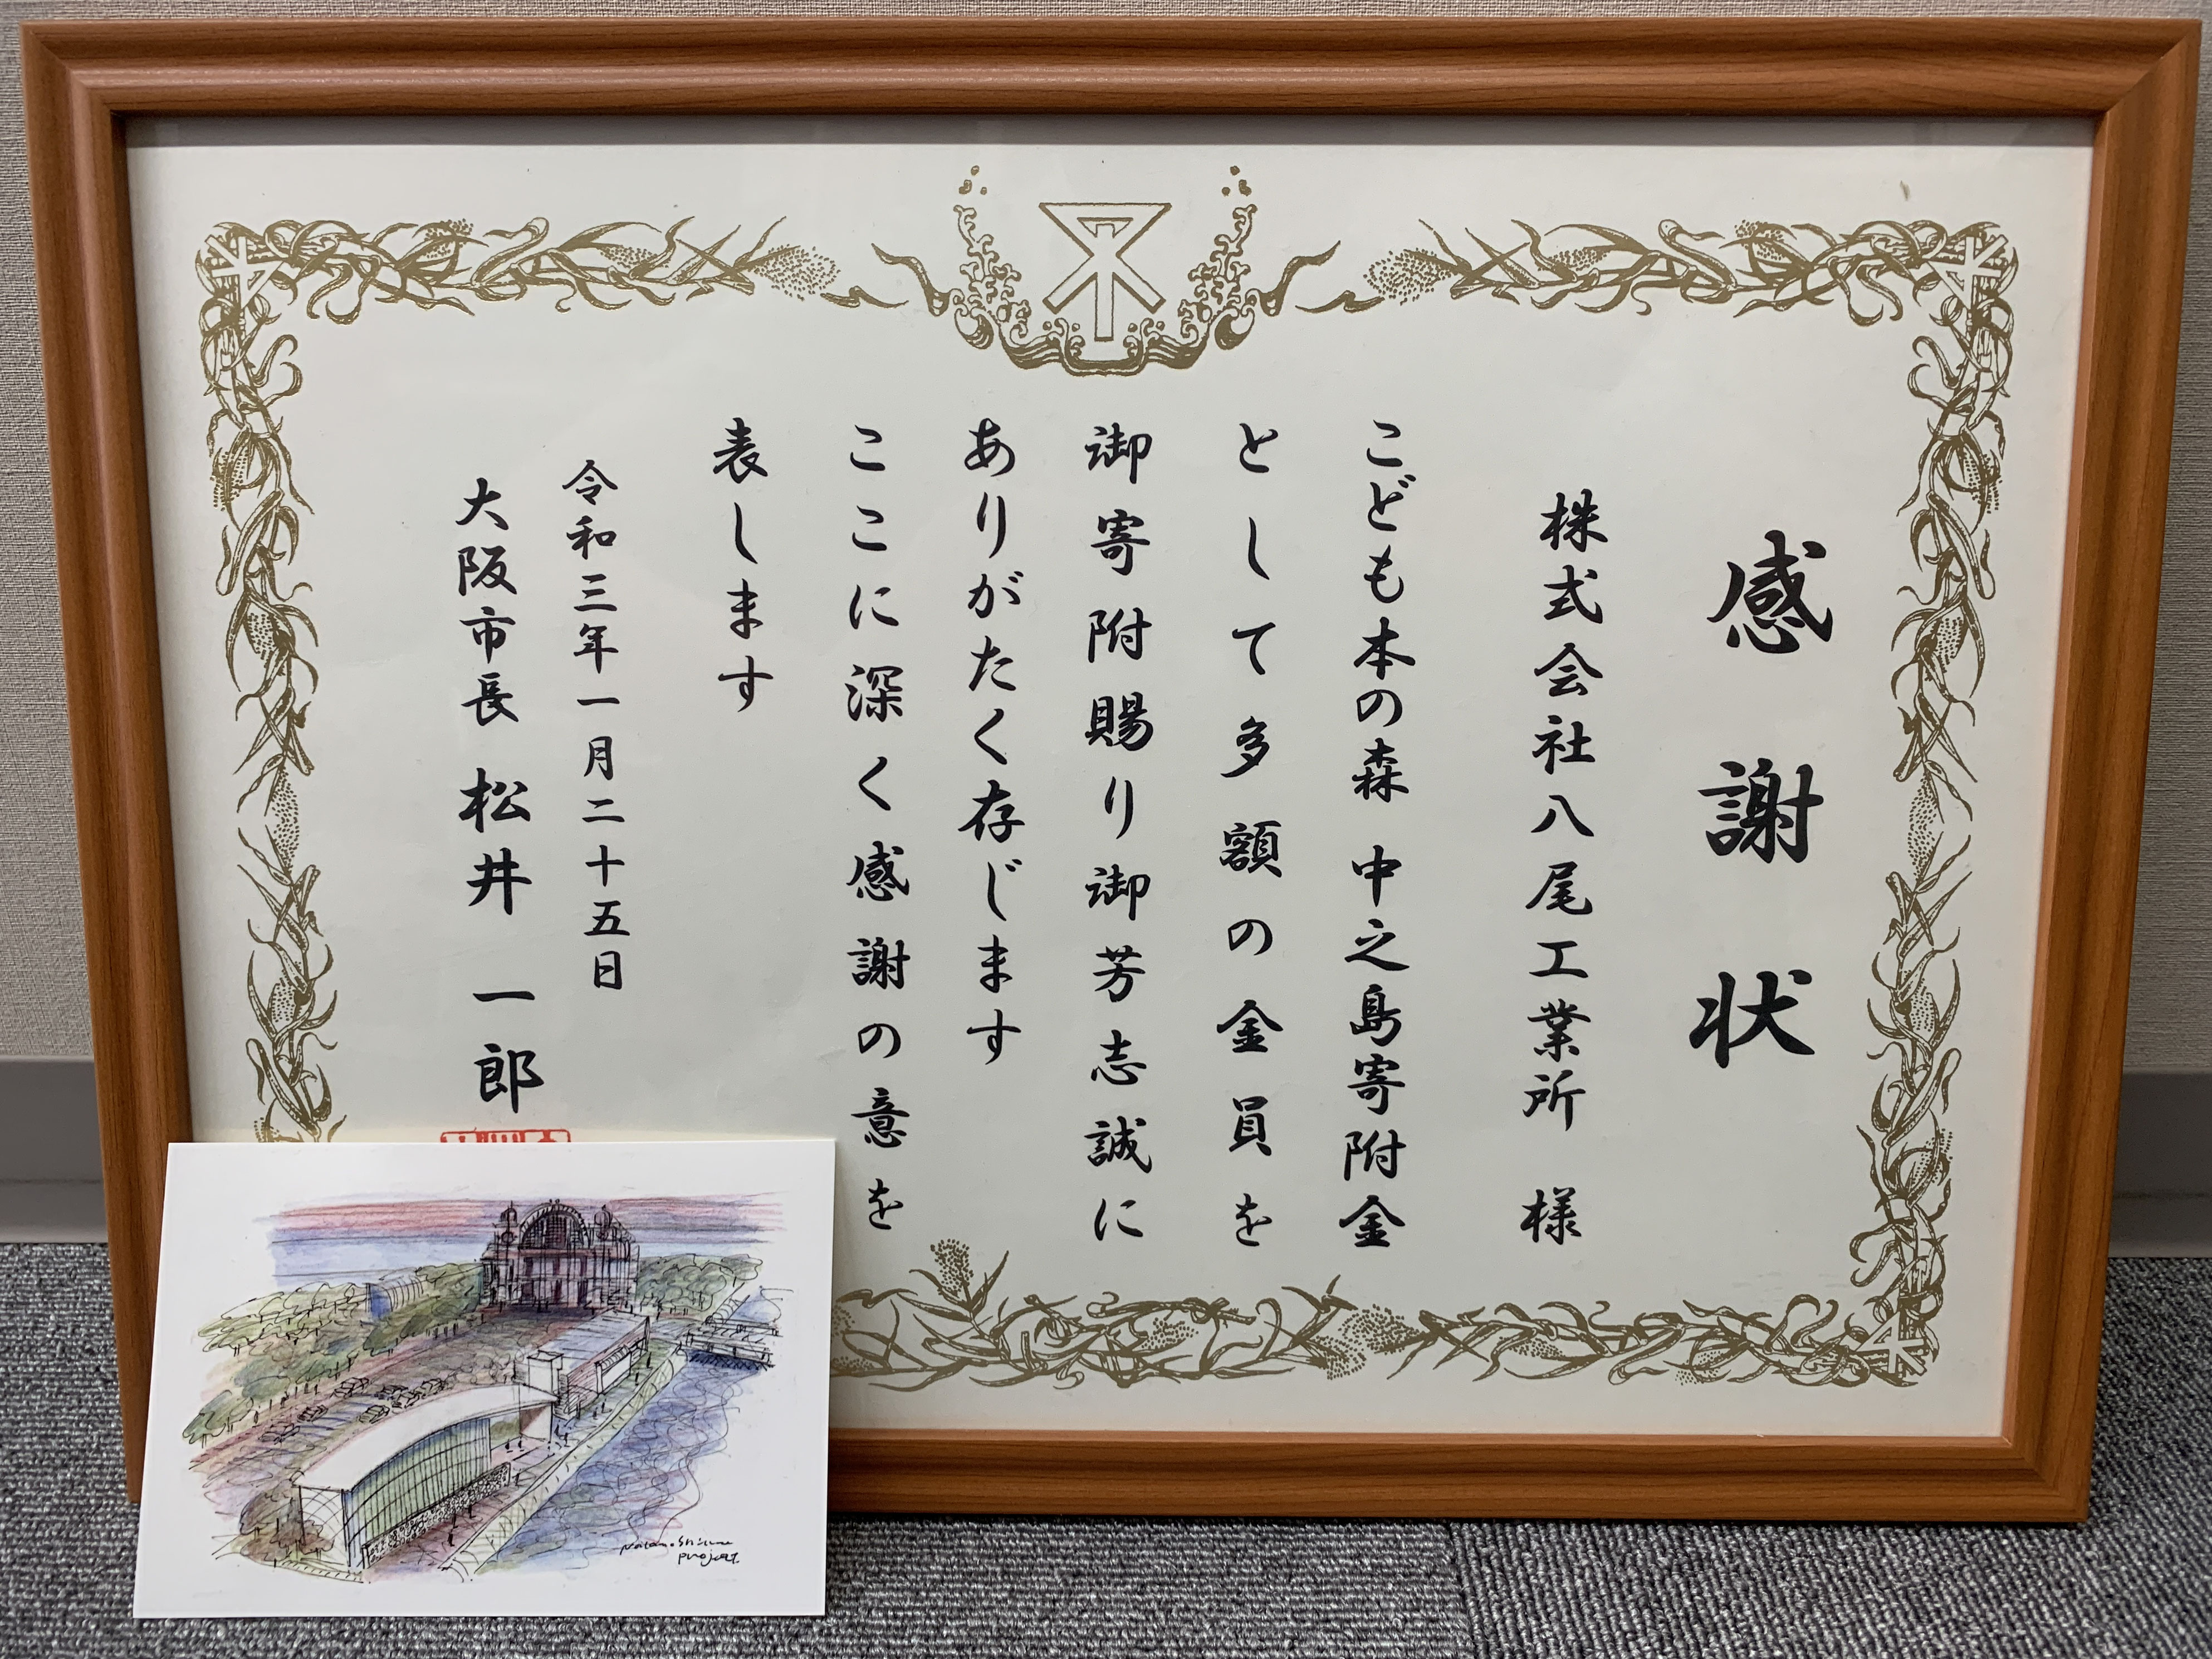 感謝状
株式会社八尾工業所 様
こども本の森 中之島寄附金
として多額の金員を
御寄附賜り御芳志誠に
ありがたく存じます
ここに深く感謝の意を
表します
令和三年一月二十五日
大阪市長 松井 一郎
Nakanoshima
project